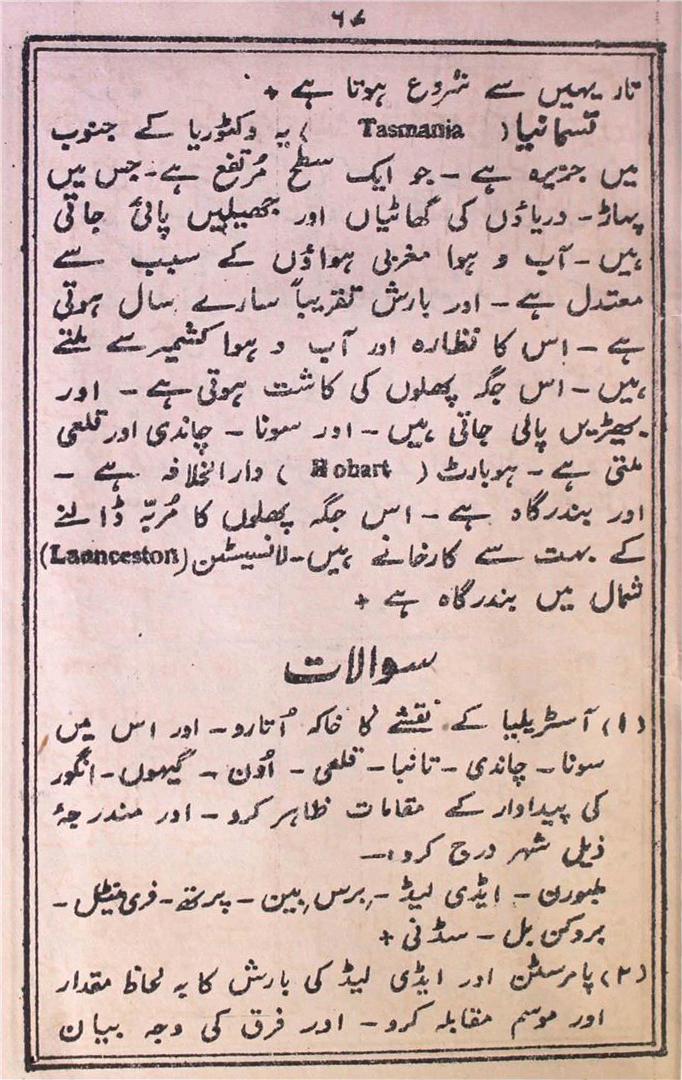 ۶۷
تار یہیں سے شروع ہوتا ہے +
تسمانیا ( Tasmania ) یہ وکٹوریا کے جنوب
میں جزیرہ ہے - جو ایک سطح مُرتفع ہے - جس میں
پہاڑ - دریاؤں کی گھاٹیاں اور جھیلیں پائی جاتی
ہیں - آب و ہوا مغربی ہواؤں کے سبب سے
معتدل ہے - اور بارش تقریباً سارے سال ہوتی
ہے - اس کا نظارہ اور آب و ہوا کشمیر سے ملتے
ہیں - اس جگہ پھلوں کی کاشت ہوتی ہے - اور
بھیڑیں پالی جاتی ہیں - اور سونا - چاندی اور قلعی
ملتی ہے - ہوبارٹ ( Hobart ) دارالخلافہ ہے -
اور بندرگاہ ہے - اس جگہ پھلوں کا مُربّہ ڈالنے
کے بہت سے کارخانے ہیں - لانسیسٹن (Laanceston)
شمال میں بندرگاہ ہے +
سوالات
(۱) آسٹریلیا کے نقشے کا خاکہ اُتارو - اور اس میں
سونا - چاندی - تانبا - قلعی - اُون - گیہوں - انگور
کی پیداوار کے مقامات ظاہر کرو - اور مندرجۂ
ذیل شہر درج کرو :-
ملبورن - ایڈی لیڈ - برس بین - پرتھ - فری مینٹل -
بروکن ہل - سڈنی +
(۲) پامرسٹن اور ایڈی لیڈ کی بارش کا بہ لحاظ مقدار
اور موسم مقابلہ کرو - اور فرق کی وجہ بیان